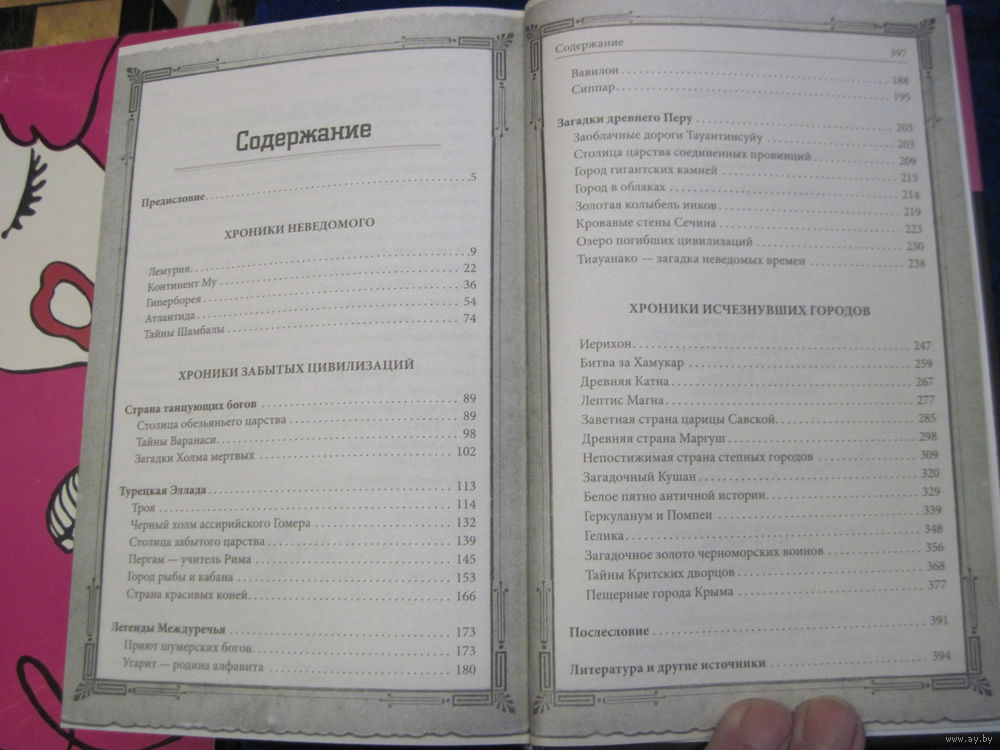 Содержание
Предисловие 5
ХРОНИКИ НЕВЕДОМОГО
Лемурия 9
Континент Му 22
Гиперборея 36
Атлантида 54
Тайны Шамбалы 74
ХРОНИКИ ЗАБЫТЫХ ЦИВИЛИЗАЦИЙ
Страна танцующих богов 89
Столица обезьяньего царства 89
Тайны Варанаси 98
Загадки Холма мертвых 102
Турецкая Эллада 113
Троя 114
Черный холм ассирийского Гомера 132
Столица забытого царства 139
Пергам — учитель Рима 145
Город рыбы и кабана 153
Страна красивых коней 166
Легенды Междуречья 173
Приют шумерских богов 173
Угарит — родина алфавита 180
Содержание 397
Вавилон 188
Сиппар 195
Загадки древнего Перу 203
Заоблачные дороги Тауантинсуйу 203
Столица царства соединенных провинций 209
Город гигантских камней 213
Город в облаках 214
Золотая колыбель инков 219
Кровавые стены Сечина 223
Озеро погибших цивилизаций 230
Тиауанако — загадка неведомых времен 238
ХРОНИКИ ИСЧЕЗНУВШИХ ГОРОДОВ
Иерихон 247
Битва за Хамукар 259
Древняя Катна 267
Лептис Магна 277
Заветная страна царицы Савской 285
Древняя страна Маргуш 298
Непостижимая страна степных городов 309
Загадочный Кушан 320
Белое пятно античной истории 329
Геркуланум и Помпеи 339
Гелика 348
Загадочное золото черноморских воинов 356
Тайны Критских дворцов 368
Пещерные города Крыма 377
Послесловие 391
Литература и другие источники 394
www.ay.by